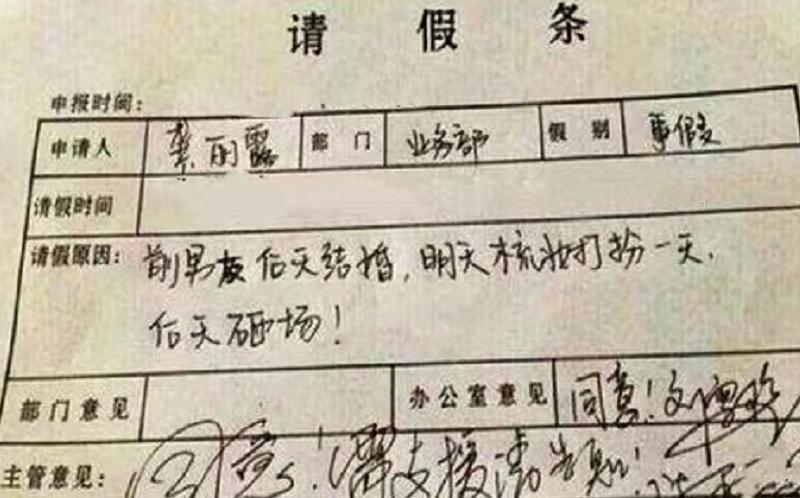 请假条
申报时间：
申请人 丽露 部门 业务部 假别 事假
请假时间
请假原因：前男友后天结婚，明天梳妆打扮一天，
后天砸场！
部门意见 办公室意见 同意！
主管意见：同意！需支援请告知！